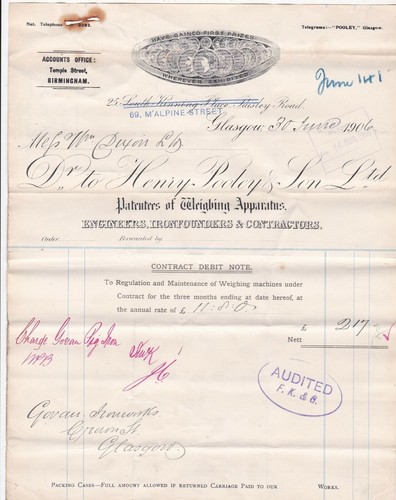 Nat. Telephone
Telegrams:—"POOLEY," Glasgow.
HAVE GAINED FIRST PRIZES
WHEREVER EXHIBITED
ACCOUNTS OFFICE:
Temple Street,
BIRMINGHAM.
June 141
25 South Kinning Place, Paisley Road.
69, M'ALPINE STREET
Glasgow, 30 June 1906
Messrs Wm Dixon Ld
Dr. to Henry Pooley & Son Ltd
Patentees of Weighing Apparatus.
ENGINEERS, IRONFOUNDERS & CONTRACTORS.
Order Forwarded by
CONTRACT DEBIT NOTE.
To Regulation and Maintenance of Weighing machines under
Contract for the three months ending at date hereof, at
the annual rate of £ 11:8:0
£ 2 17
Nett
Charge Govan Pig Iron
AUDITED
F. K. & G.
Govan Ironworks
Crown St
Glasgow
PACKING CASES—FULL AMOUNT ALLOWED IF RETURNED CARRIAGE PAID TO OUR WORKS.